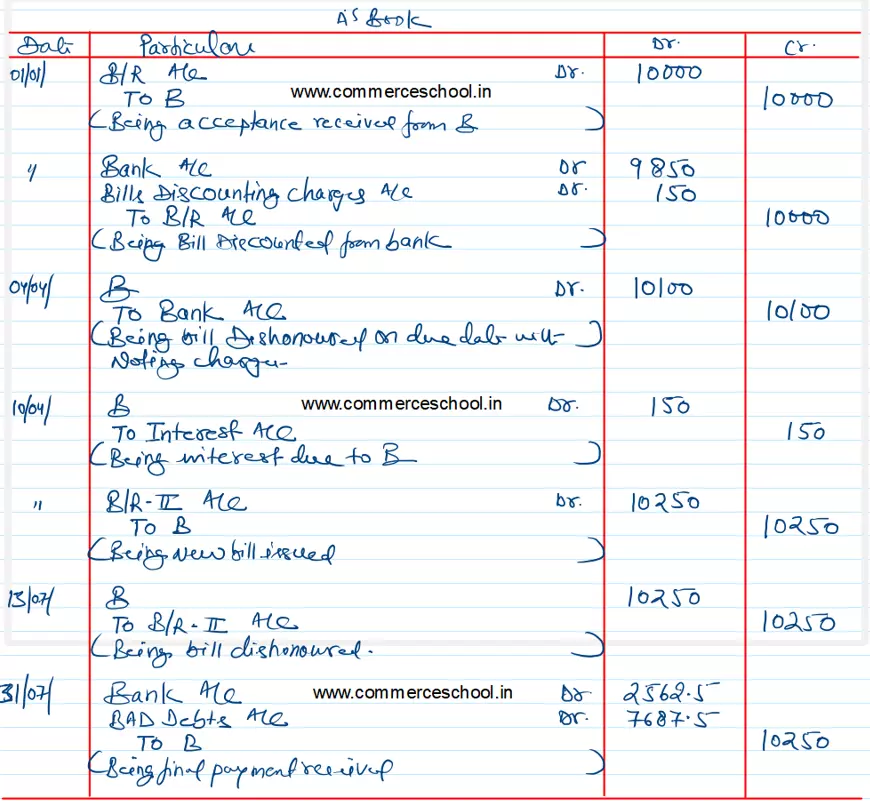 A's Book
Date Particulars Dr. Cr.
01/01/ B/R A/c Dr. 10000
To B www.commerceschool.in 10000
(Being acceptance received from B)
" Bank A/c Dr 9850
Bills Discounting Charges A/c Dr. 150
To B/R A/c 10000
(Being Bill Discounted from bank)
04/04/ B Dr. 10100
To Bank A/c 10100
(Being bill Dishonoured on due date with)
Noting charges
10/04/ B www.commerceschool.in Dr. 150
To Interest A/c 150
(Being interest due to B)
" B/R-II A/c Dr. 10250
To B 10250
(Being New bill issued)
13/07/ B 10250
To B/R-II A/c 10250
(Being bill dishonoured.)
31/07/ Bank A/c www.commerceschool.in Dr 2562.5
BAD Debts A/c Dr. 7687.5
To B 10250
(Being final payment received)